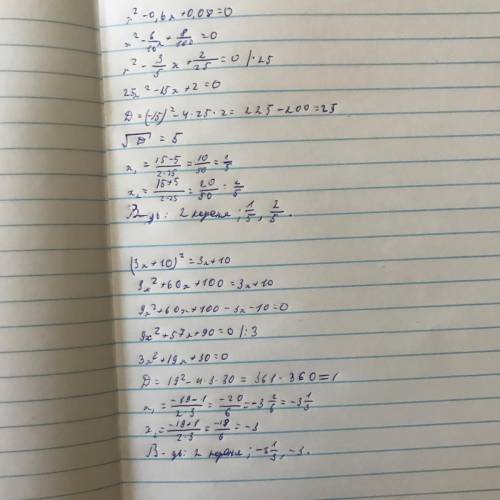 x² - 0,6x + 0,08 = 0
x² - 6/10 x + 8/100 = 0
x² - 3/5 x + 2/25 = 0 /·25
25x² - 15x + 2 = 0
D = (-15)² - 4·25·2 = 225 - 200 = 25
√D = 5
x₁ = (15-5)/(2·25) = 10/50 = 1/5
x₂ = (15+5)/(2·25) = 20/50 = 2/5
В-дь: 2 корена; 1/5, 2/5.
(3x+10)² = 3x+10
9x² + 60x + 100 = 3x + 10
9x² + 60x + 100 - 3x - 10 = 0
9x² + 57x + 90 = 0 /:3
3x² + 19x + 30 = 0
D = 19² - 4·3·30 = 361 - 360 = 1
x₁ = (-19-1)/(2·3) = -20/6 = -3 2/6 = -3 1/3
x₂ = (-19+1)/(2·3) = -18/6 = -3
В-дь: 2 кореня; -3 1/3, -3.